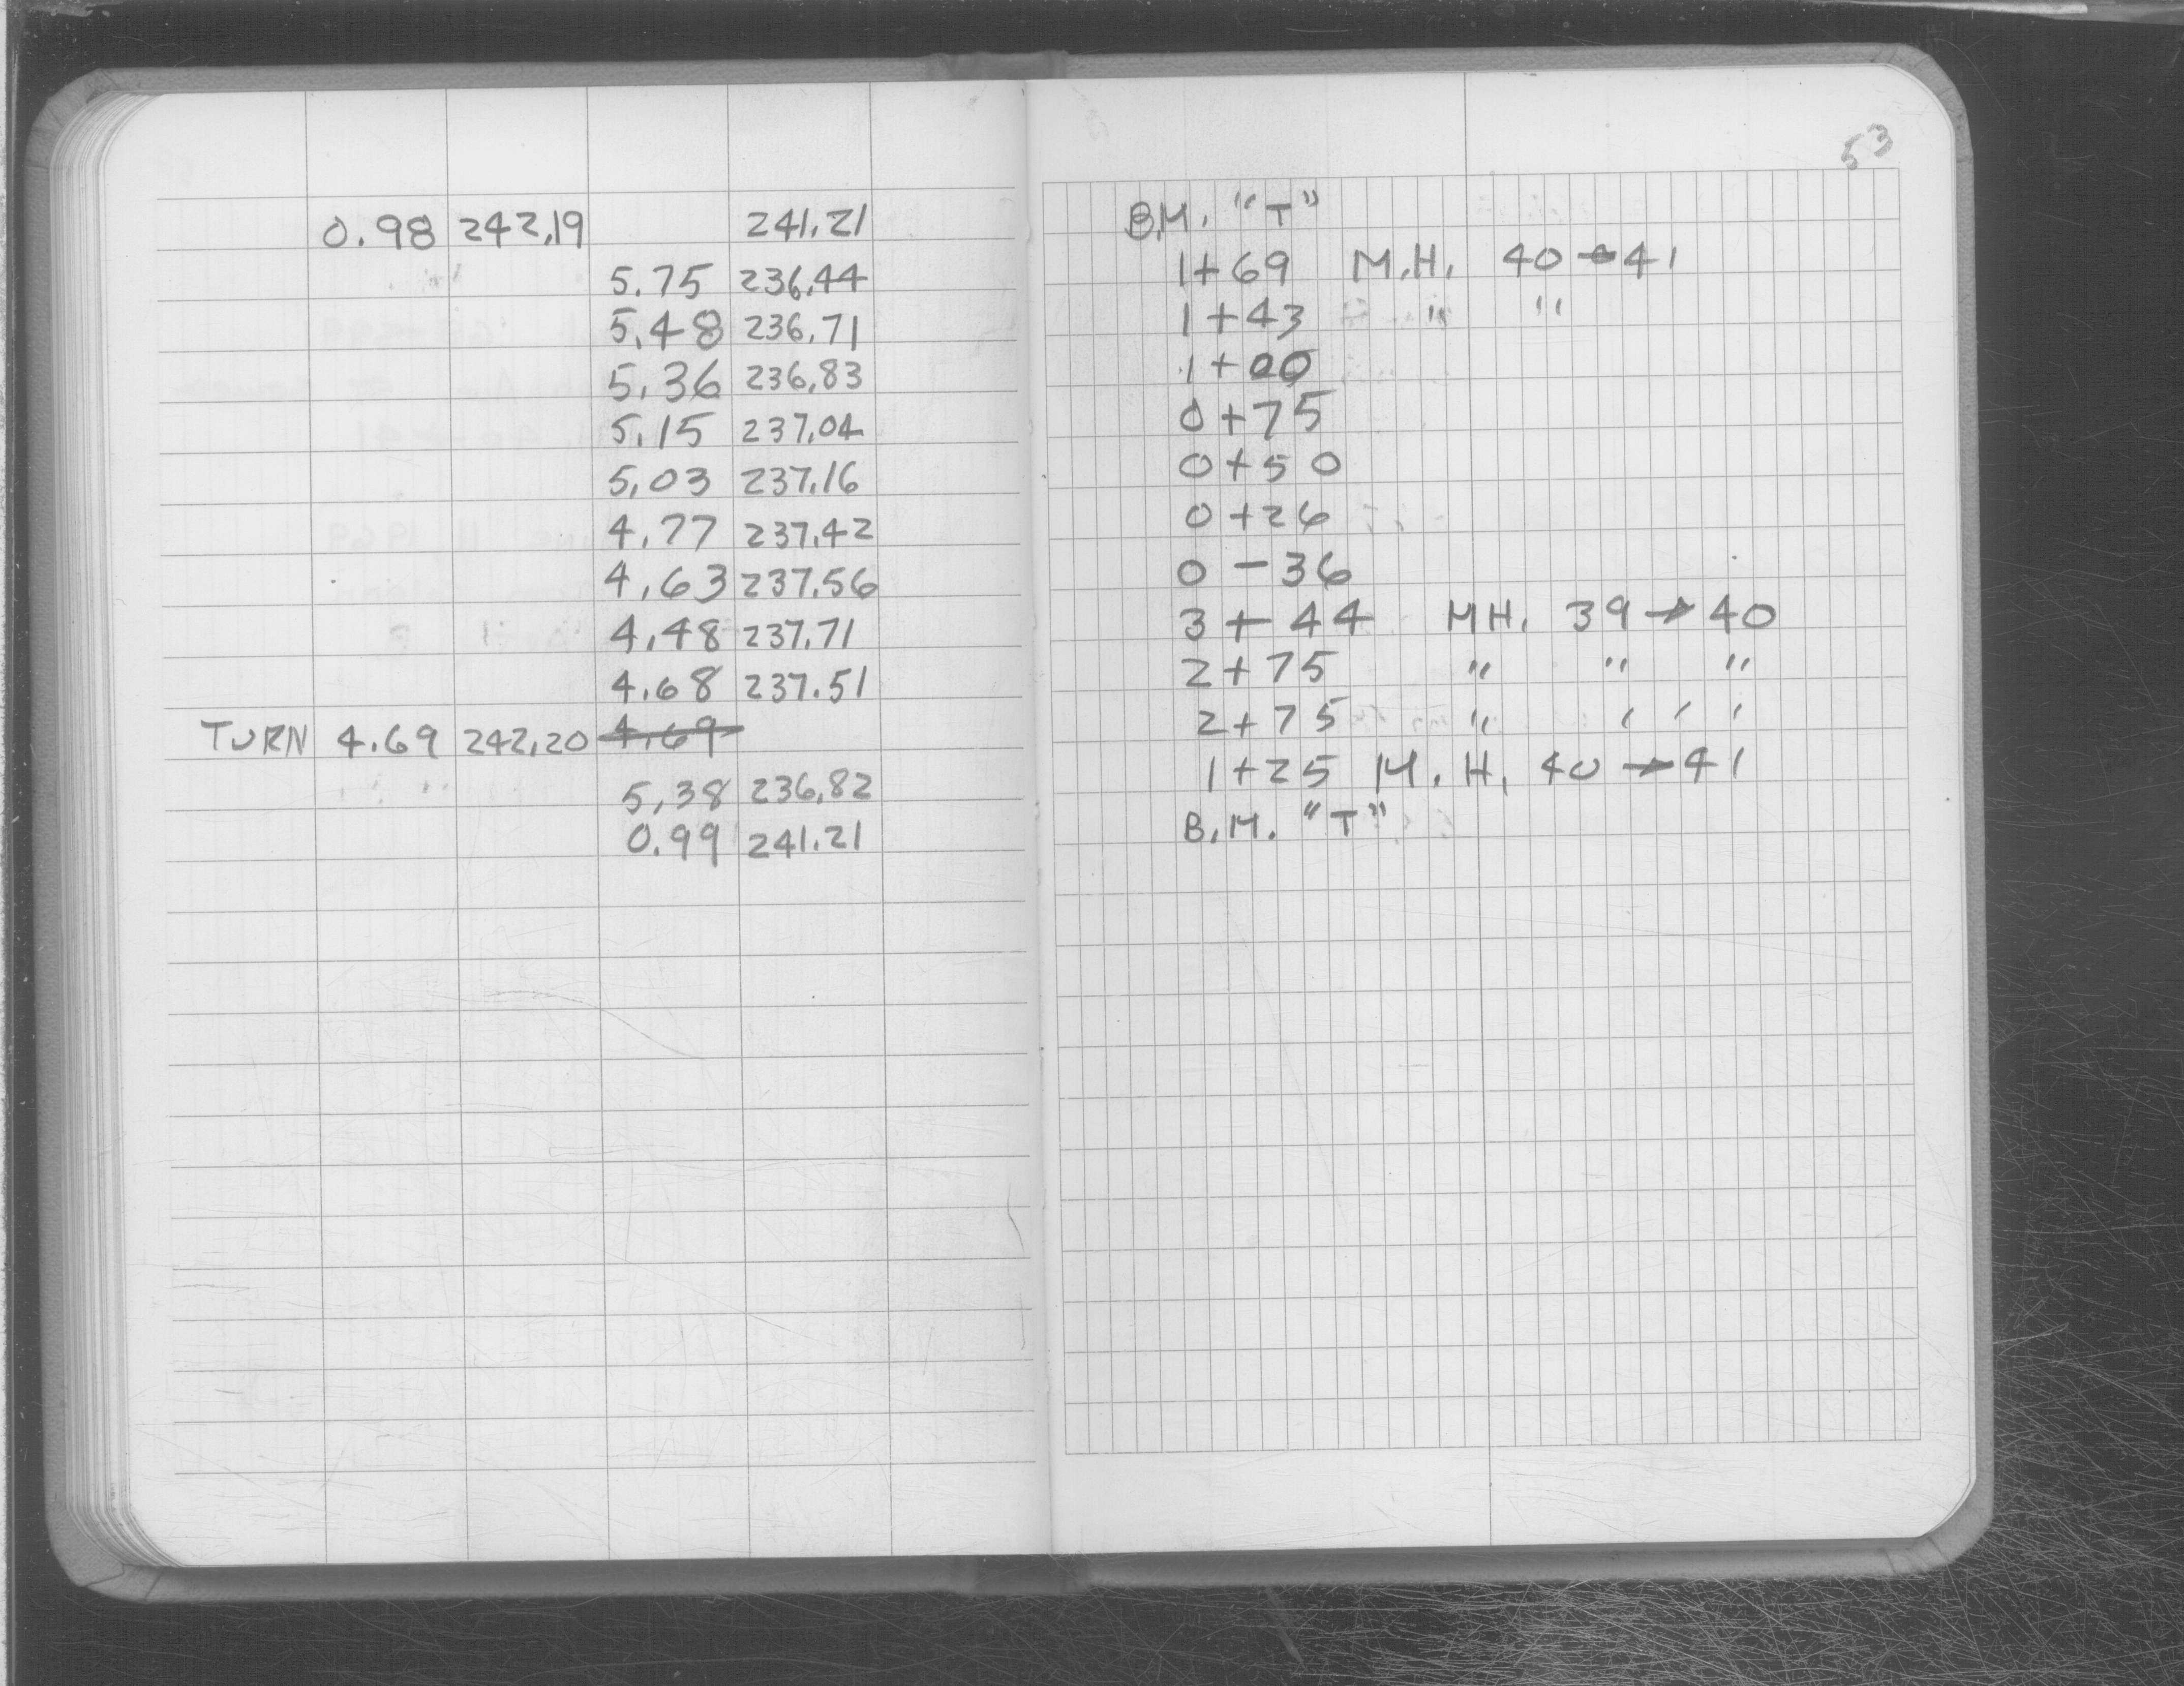 53
0.98 242.19 241.21 B.M. "T"
5.75 236.44 1+69 M.H. 40→41
5.48 236.71 1+43 " "
5.36 236.83 1+00
5.15 237.04 0+75
5.03 237.16 0+50
4.77 237.42 0+26
4.63 237.56 0-36
4.48 237.71 3+44 MH. 39→40
4.68 237.51 2+75 " " "
TURN 4.69 242.20 4.69 2+75 " ' ' '
5.38 236.82 1+25 M.H. 40→41
0.99 241.21 B.M. "T"